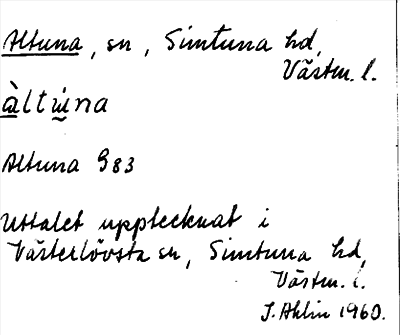 Altuna, sn, Simtuna hd,
Västm. l.
àltu̇̀na
Altuna G83
Uttalet upptecknat i
Västerlövsta sn, Simtuna hd,
Västm. l.
J. Ahlin 1960.